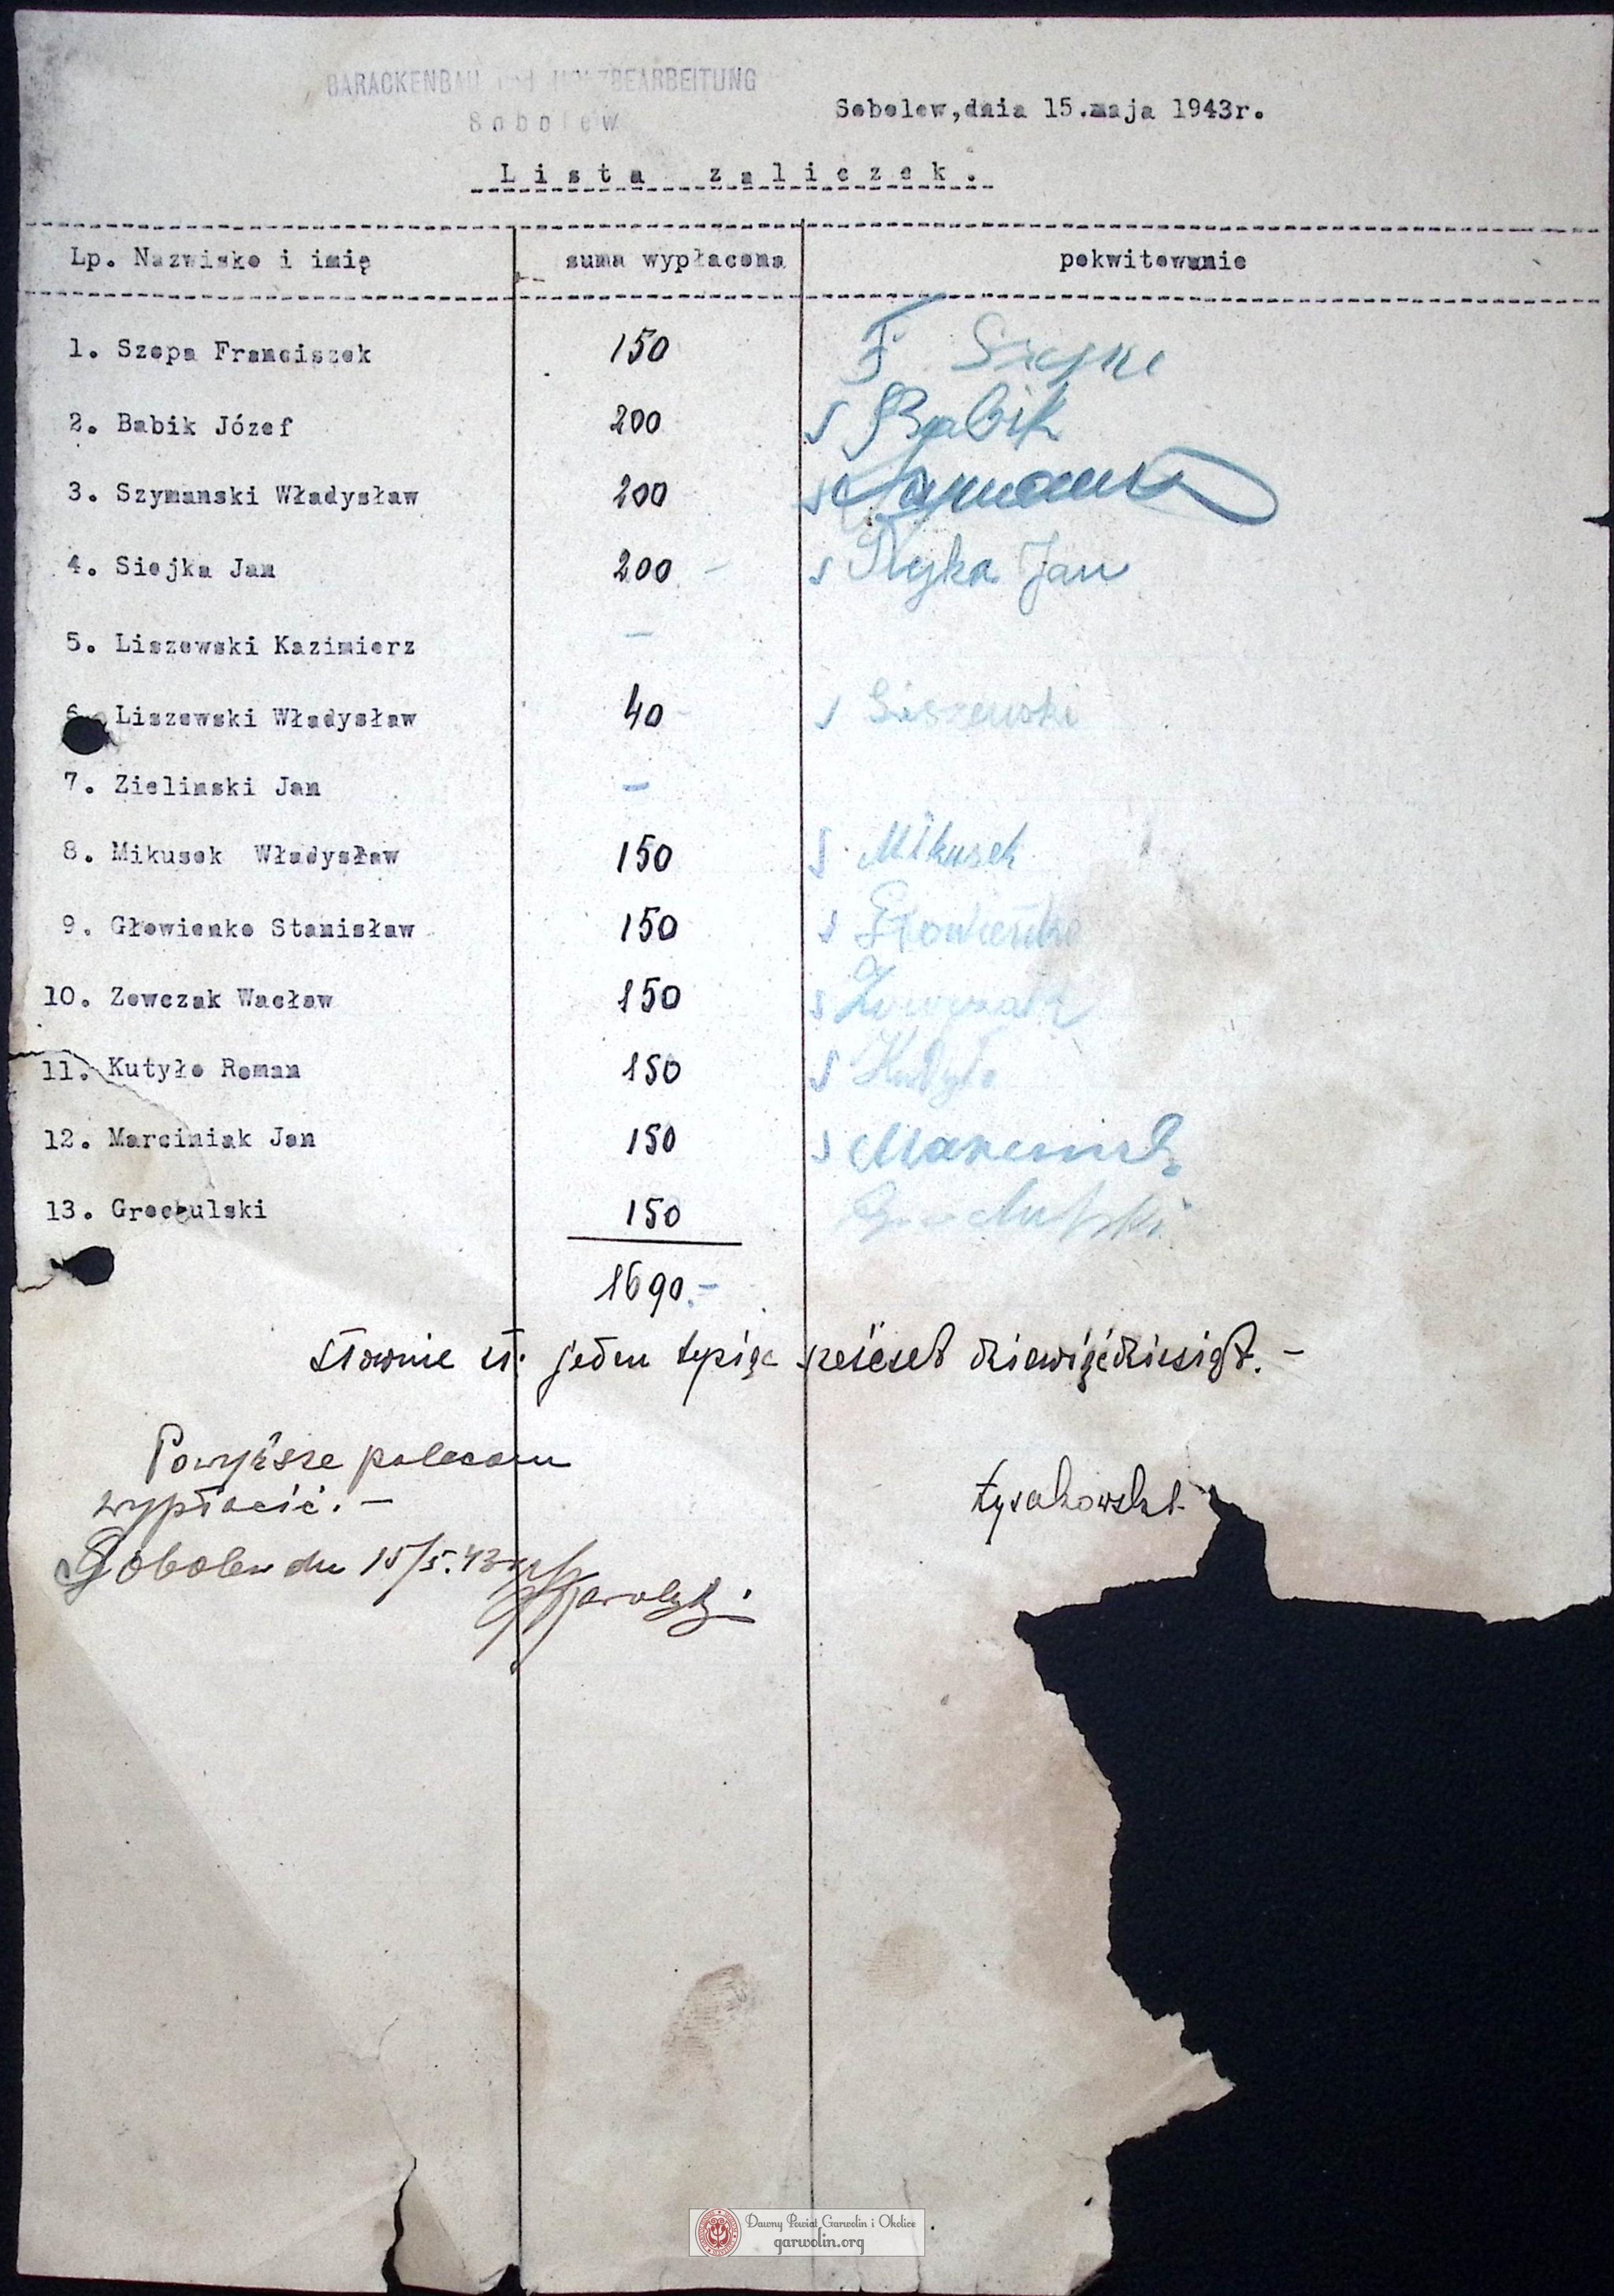 BARACKENBAU und HOLZBEARBEITUNG
Sobolew
Sobolew,dnia 15.maja 1943r.
Lista zaliczek.
Lp. Nazwisko i imię suma wypłacona pokwitowanie
1. Szopa Franciszek 150 F.
2. Babik Józef 200 Babik
3. Szymanski Władysław 200
4. Siejka Jan 200 Siejka Jan
5. Liszewski Kazimierz -
6. Liszewski Władysław 40 Liszewski
7. Zielinski Jan -
8. Mikusek Władysław 150 Mikusek
9. Głowienko Stanisław 150 Głowieńko
10. Zowczak Wacław 150 Zowczak
11. Kutyło Roman 150 Kutyło
12. Marciniak Jan 150 Marciniak
13. Grochulski 150 Grochulski
1690.-
Słownie zł. jeden tysiąc sześćset dziewięćdziesiąt.-
Powyższe polecam
wypłacić.-
Łysakowski
Sobolew dn 15/5.43
Dawny Powiat Garwolin i Okolice
garwolin.org